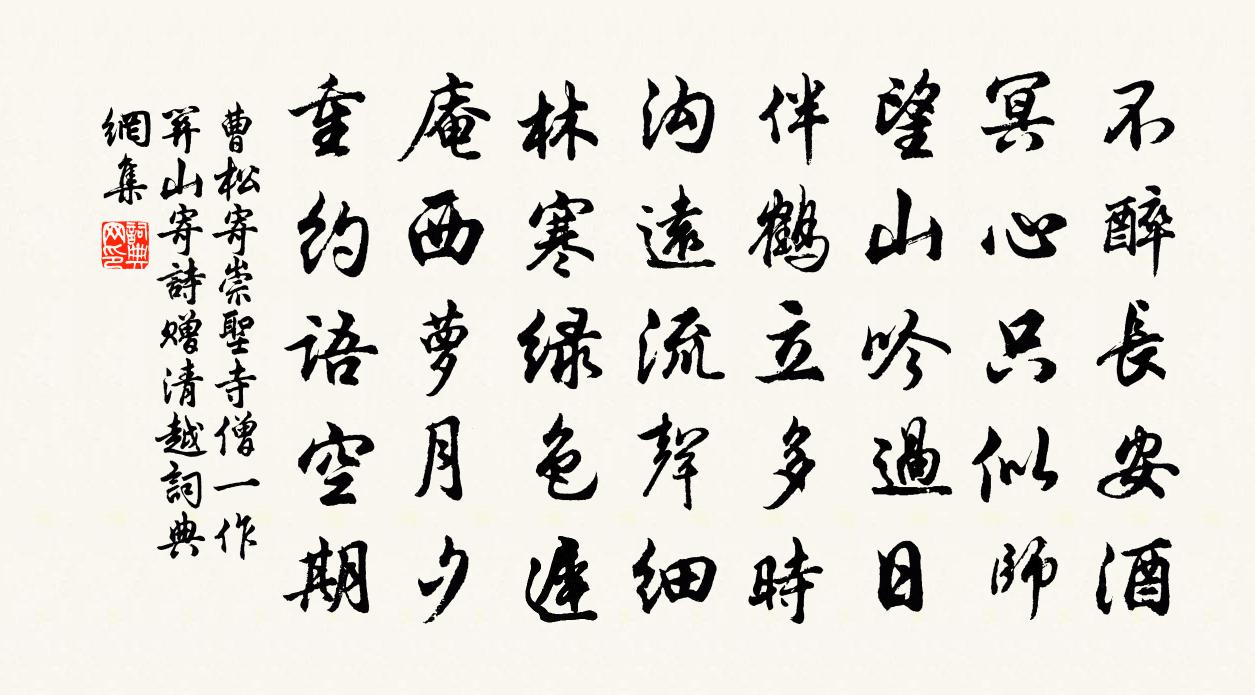 不醉長安酒
冥心只似師
望山吟過日
伴鶴立多時
沟遠流聲細
林寒绿色遲
庵西萝月夕
重約語空期
曹松寄崇聖寺僧一作
笄山寄詩赠清越詞典
網集
詞典
网印